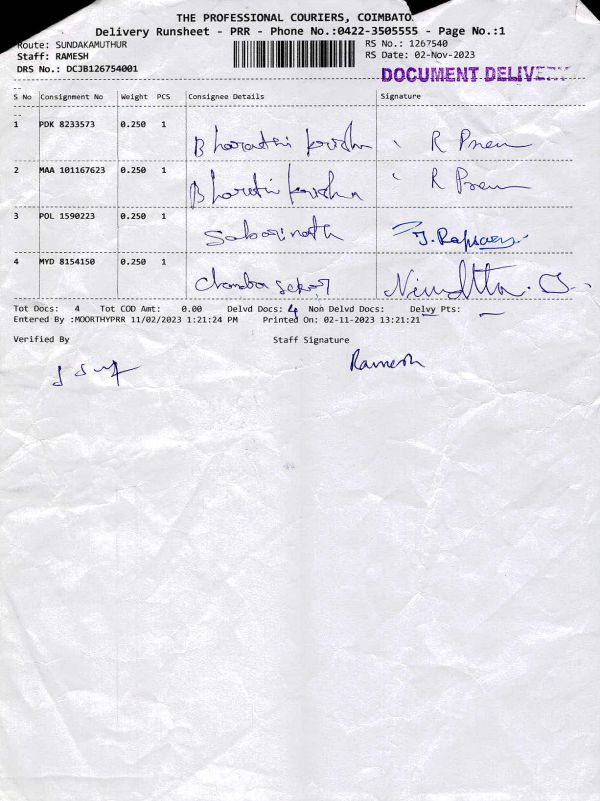 THE PROFESSIONAL COURIERS, COIMBATO
Delivery Runsheet - PRR - Phone No.:0422-3505555 - Page No.:1
Route: SUNDAKAMUTHUR RS No.: 1267540
Staff: RAMESH RS Date: 02-Nov-2023
DRS No.: DCJB126754001 DOCUMENT
S No Consignment No Weight PCS Consignee Details Signature
1 PDK 8233573 0.250 1 Bharathi krishna R Prem
2 MAA 101167623 0.250 1 Bharathi krishna R Prem
3 POL 1590223 0.250 1 Sabarinath
4 MYD 8154150 0.250 1
Tot Docs: 4 Tot COD Amt: 0.00 Delvd Docs: 4 Non Delvd Docs: Delvy Pts:
Entered By :MOORTHYPRR 11/02/2023 1:21:24 PM Printed On: 02-11-2023 13:21:21
Verified By Staff Signature
Ramesh